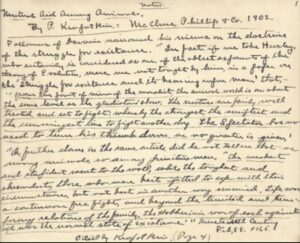 Notes. 1
Mutual Aid Among Animals.
By P. Kropotkin. McClure Phillips & Co. 1902.
Followers of Darwin narrowed his views on the doctrine
of the struggle for existence. "In fact, if we take Huxley,
who certainly is considered as one of the ablest exponents of the
theory of Evolution, were we not taught by him in a paper on
the 'Struggle for existence and its bearing upon man' that -
"from the point of view of the moralist the animal world is on about
the same level as the gladiators' show. The creatures are fairly well
treated and set to fight; whereby the strongest, the swiftest and
the cunningest live to fight another day. The spectator has no
need to turn his thumb down, as no quarter is given."
"A further down in the same article did he not tell us that as
among animals so among primitive men, "the weakest
and stupidest went to the wall, while the toughest and
shrewdest, those who were best fitted to cope with their
circumstances, but not best in another way survived. Life was
a continuous free fight, and beyond the limited and temp-
orary relations of the family, the Hobbesian war of each against
all was the normal state of existence." Nineteenth Century
Feb. 88. P 165.
Cited by Kropotkin, (Page 4)